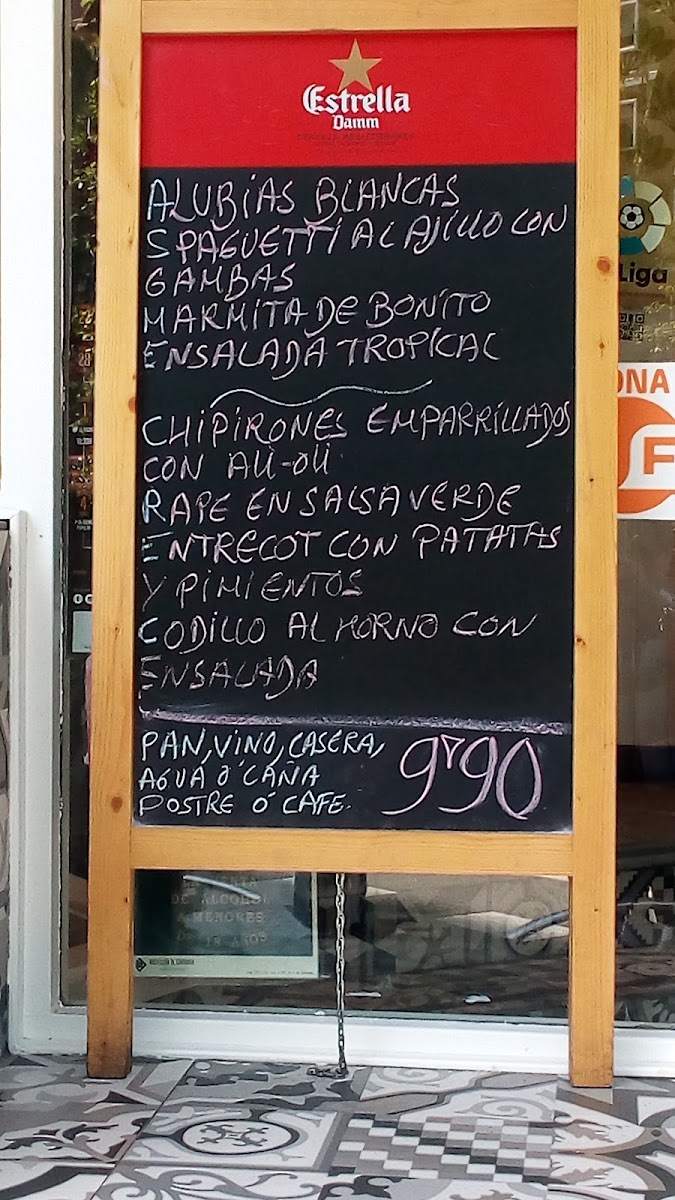 Estrella
Damm
ALUBIAS BLANCAS
SPAGUETTI AL AJILLO CON
GAMBAS
MARMITA DE BONITO
ENSALADA TROPICAL
CHIPIRONES EMPARRILLADOS
CON ALI-OLI
RAPE EN SALSA VERDE
ENTRECOT CON PATATAS
Y PIMIENTOS
CODILLO AL HORNO CON
ENSALADA
PAN, VINO, CASERA,
AGUA Ó CAÑA
POSTRE Ó CAFE.
9'90
Liga
ONA
F
DE ALCOHOL
A MENORES
DE 18 AÑOS